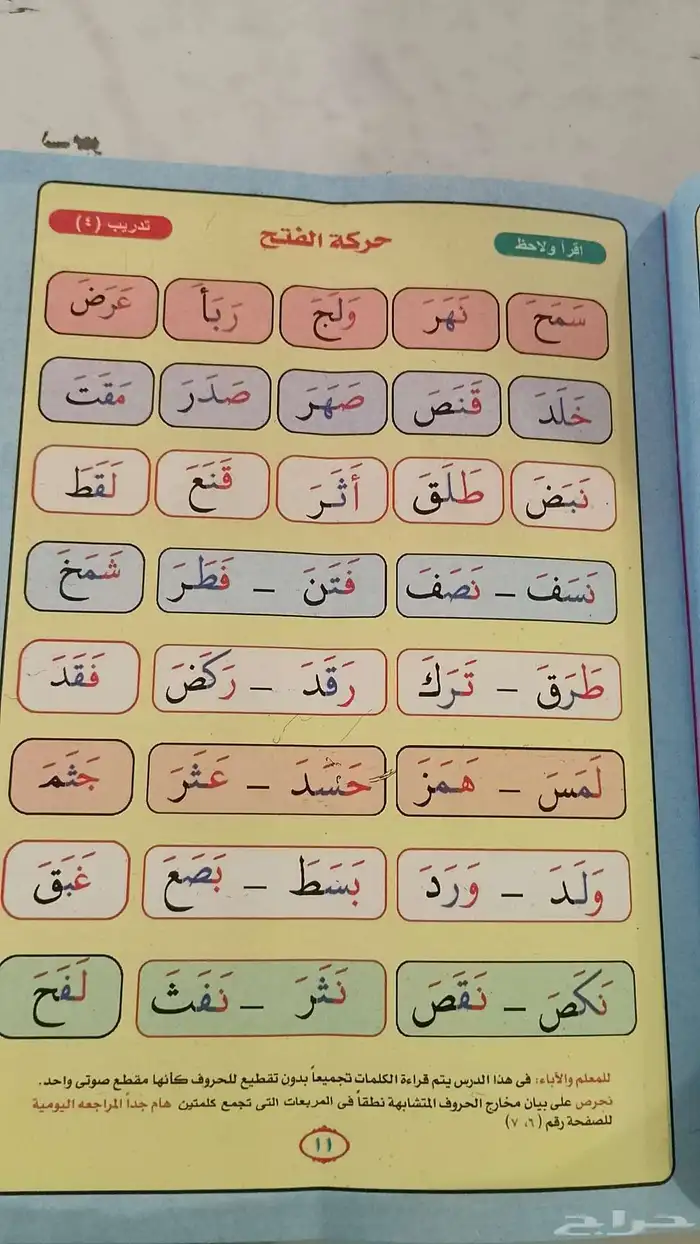 اقرأ ولاحظ حركة الفتح تدريب (٤)
سَمَحَ نَهَرَ وَلَجَ رَبَأَ عَرَضَ
خَلَدَ قَنَصَ صَهَرَ صَدَرَ مَقَتَ
نَبَضَ طَلَقَ أَثَرَ قَنَعَ لَقَطَ
نَسَفَ - نَصَفَ فَتَنَ - فَطَرَ شَمَخَ
طَرَقَ - تَرَكَ رَقَدَ - رَكَضَ فَقَدَ
لَمَسَ - هَمَزَ حَسَدَ - عَثَرَ جَثَمَ
وَلَدَ - وَرَدَ بَسَطَ - بَصَعَ غَبَقَ
نَكَصَ - نَقَصَ نَثَرَ - نَفَثَ لَفَحَ
للمعلم والآباء: فى هذا الدرس يتم قراءة الكلمات تجميعاً بدون تقطيع للحروف كأنها مقطع صوتى واحد.
نحرص على بيان مخارج الحروف المتشابهة نطقاً فى المربعات التى تجمع كلمتين هام جداً المراجعه اليومية
للصفحة رقم (٦، ٧)
١١
حراج